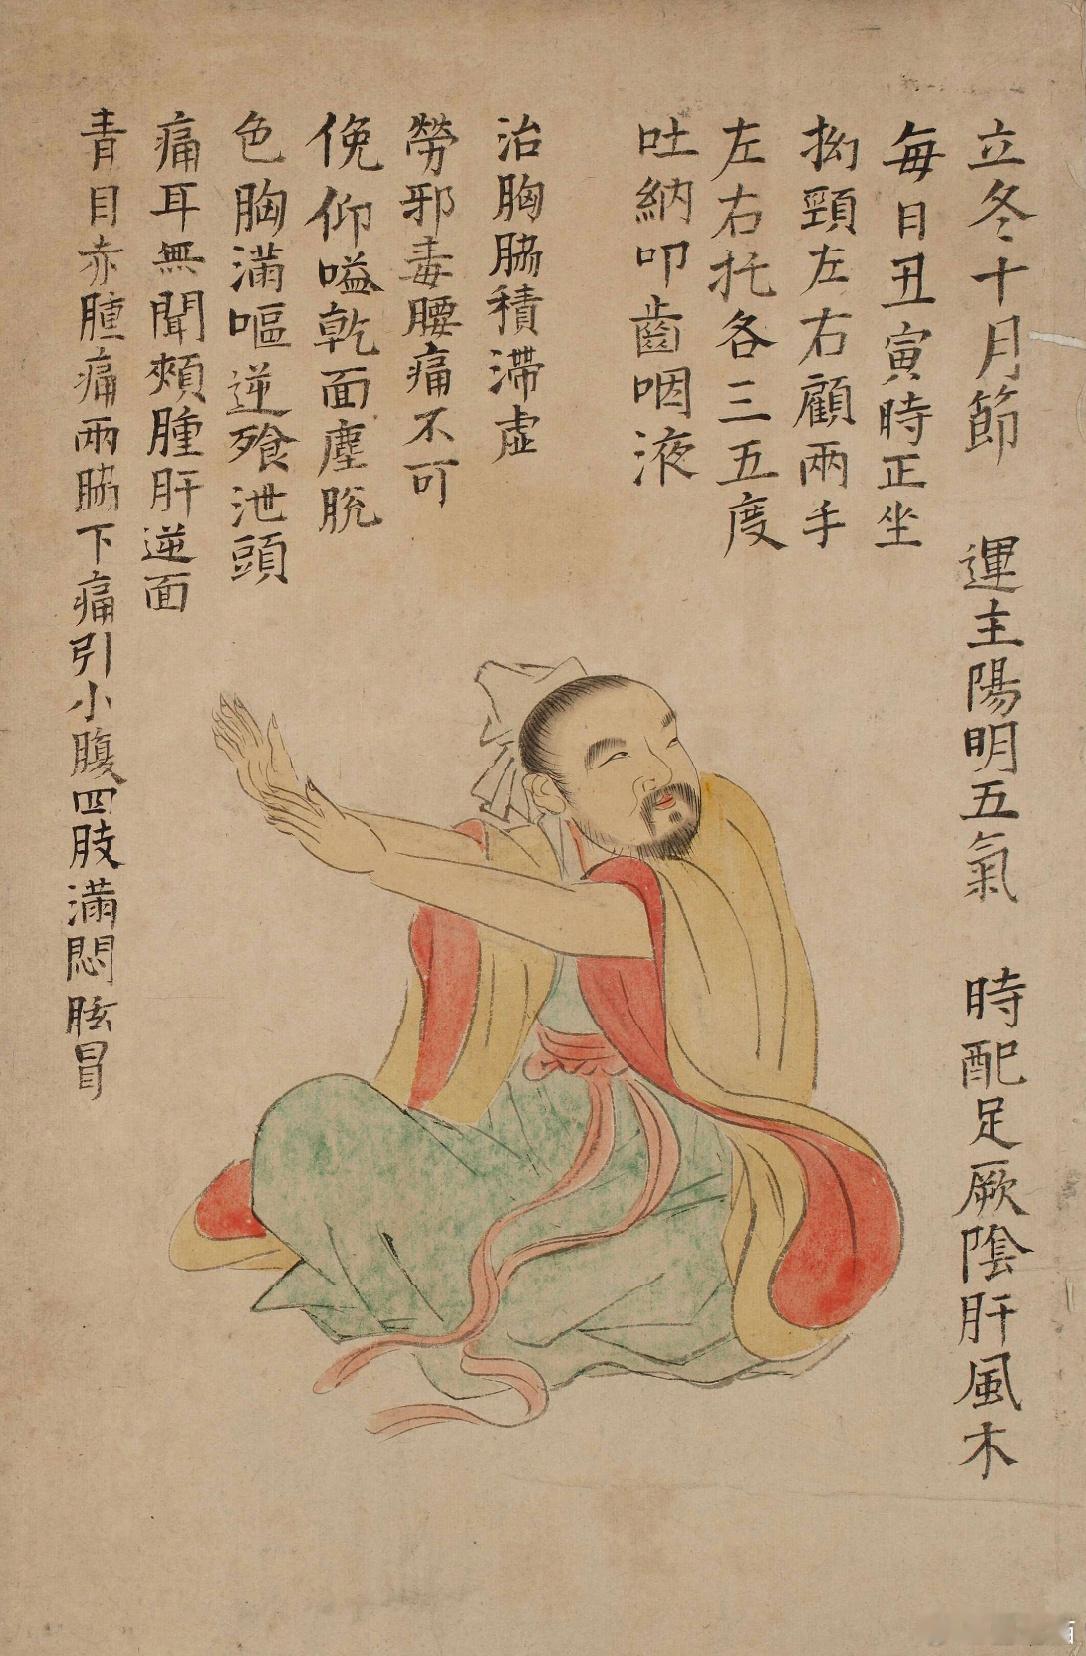 立冬十月節　運主陽明五氣　時配足厥陰肝風木
每日丑寅時正坐
拗頸左右顧兩手
左右托各三五度
吐納叩齒咽液
治胸脇積滯虛
勞邪毒腰痛不可
俛仰嗌乾面塵脫
色胸滿嘔逆飱泄頭
痛耳無聞頰腫肝逆面
青目赤腫痛兩脇下痛引小腹四肢滿悶眩冒